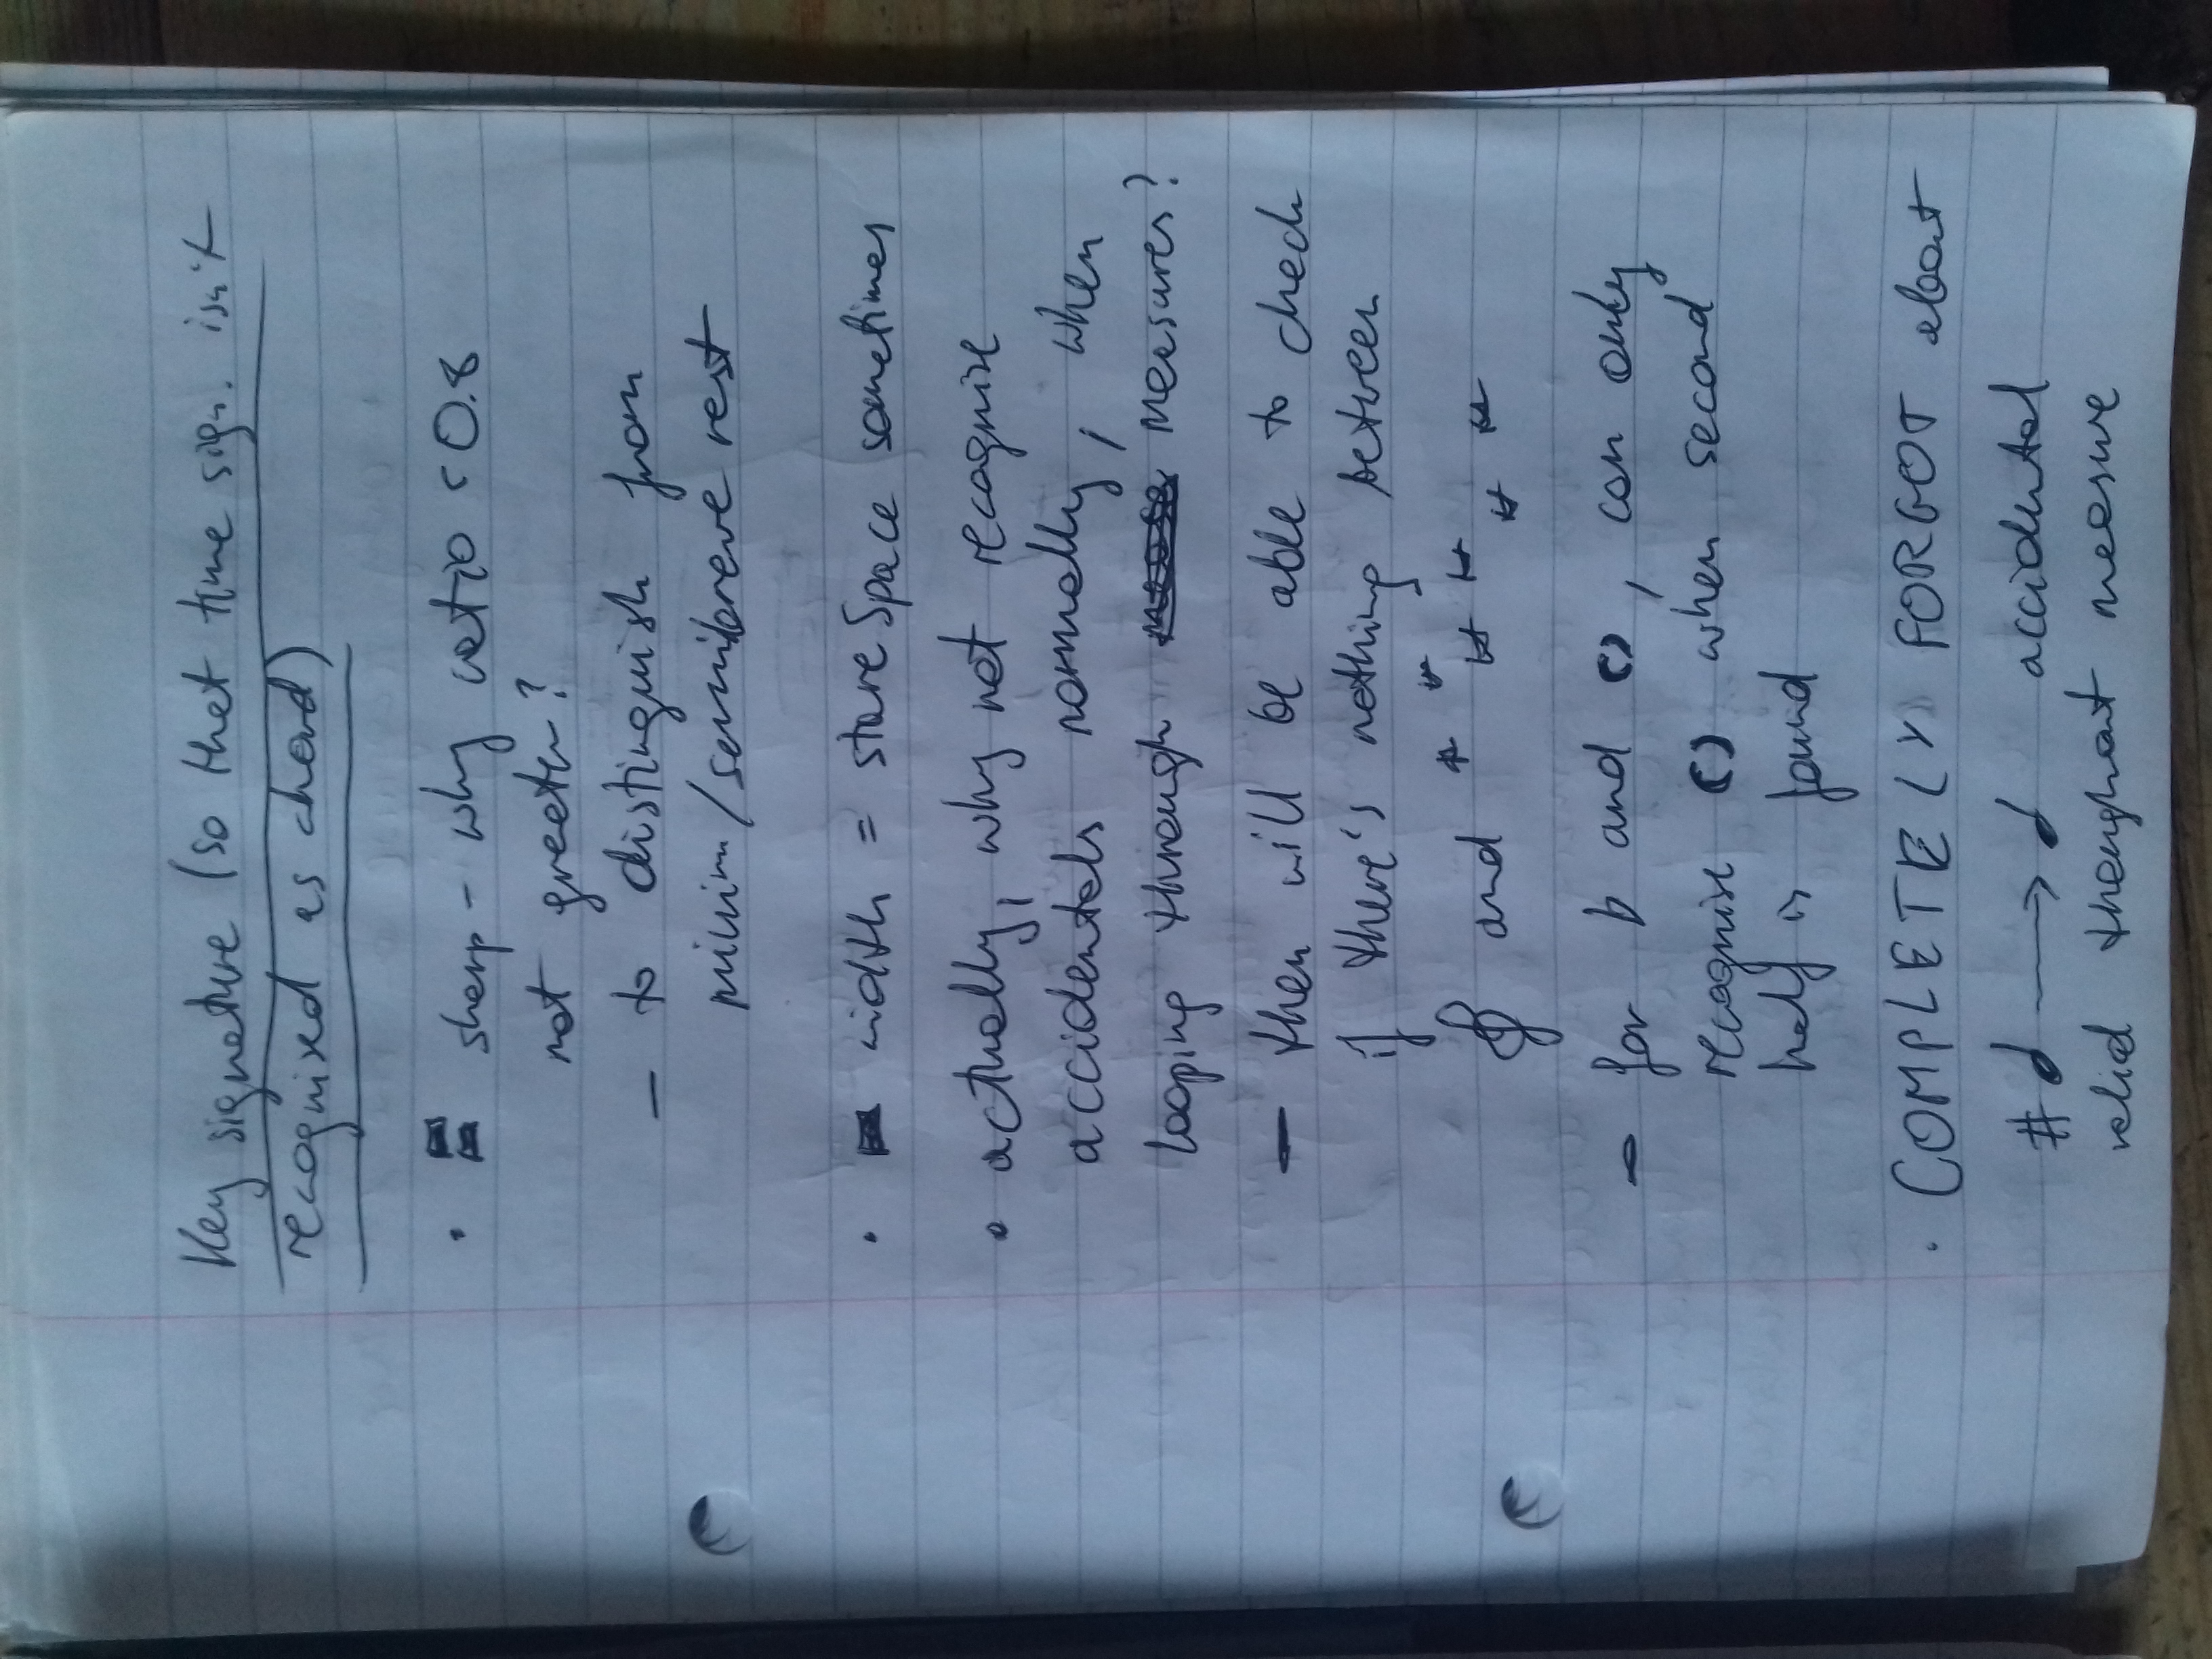 Key signature (so that time sign. isn't
recognised as chord)
· sharp - why ratio < 0.8
not greater?
- to distinguish from
minim/semibreve rest
· width = staveSpace sometimes
· actually, why not recognise
accidentals normally, when
looping through measures?
- then will be able to check
if there's nothing between
𝄞 and # # # # # #
- for b and (), can only
recognise () when second
half is found
· COMPLETELY FORGOT about
# ♩ → ♩ accidental
valid throughout measure